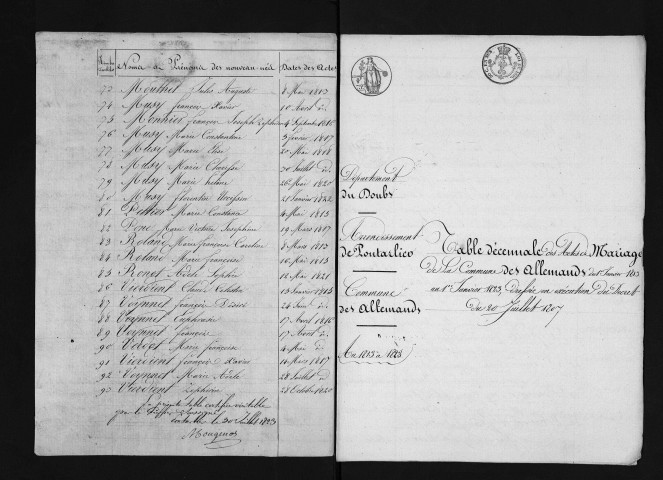 Noms et Prénoms des nouveau-nés Dates des Actes
73 Mouthet Jules Auguste 8 Mai 1813
74 Musy françois Xavier 10 Avril d.
75 Monnier françois Joseph 4 Septembre 1816
76 Musy Marie Constantine 3 février 1817
77 Musy Marie Elise 20 Mai 1818
78 Musy Marie 30 Juillet d.
79 Musy Marie 26 Mai 1820
80 Musy florentin 21 Janvier 1822
81 Marie Constance 4 Mai 1813
82 Pone Marie Victoire Joséphine 19 Mars 1817
83 Roland Marie françoise Caroline 8 Mars 1813
84 Roland Marie françoise 16 Mai 1813
85 Adèle Sophie 12 Mai 1821
86 13 Janvier 1815
87 Voynnet françois Désiré 24 Juin d.
88 Voynnet 17 Avril 1816
89 Voynnet françoise 17 Avril d.
90 Marie françoise 4 Mai d.
91 françois Xavier 10 Mars 1817
92 Voynnet Marie Adèle 28 Juillet d.
93 Zéphirin 28 Octobre 1820
La présente table certifiée véritable
par le Greffier Soussigné
le 30 Juillet 1823
Mougenot
Département
du Doubs
Arrondissement
de Pontarlier
Commune
des Allemands
An 1813 à 1823
Table décennale des Actes de Mariage
de la Commune des Allemands du 1er Janvier 1813
au 1er Janvier 1823, dressée en exécution du Décret
du 20 Juillet 1807